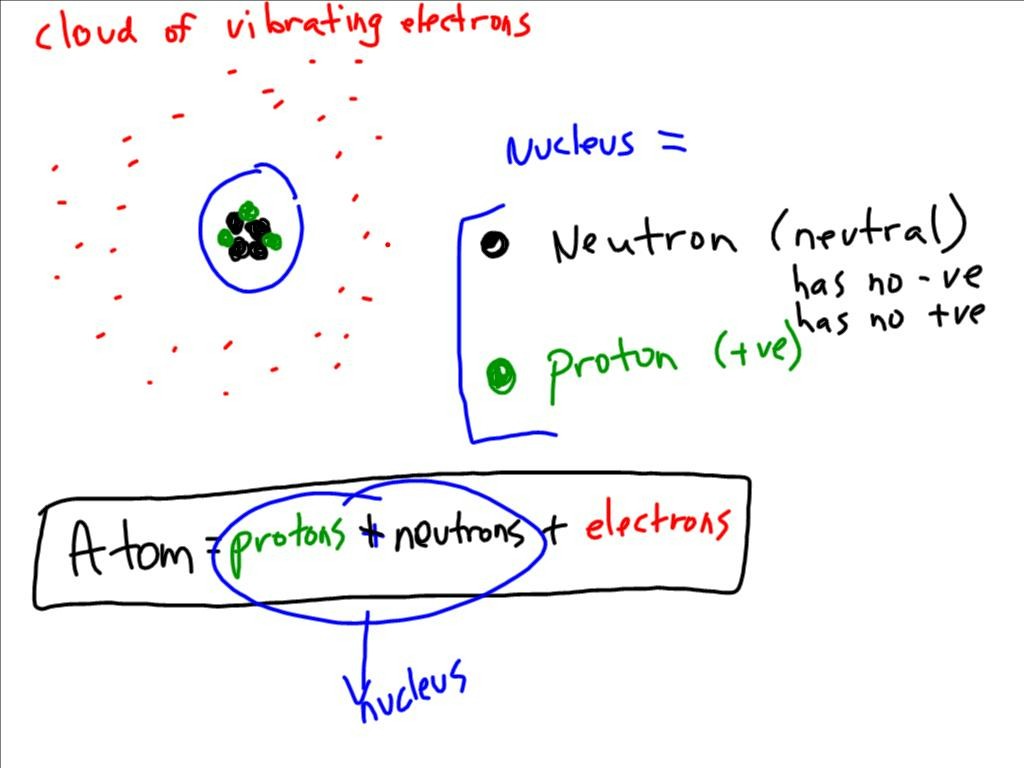 cloud of vibrating electrons
Nucleus =
Neutron (neutral)
has no -ve
has no +ve
proton (+ve)
Atom = protons + neutrons + electrons
nucleus